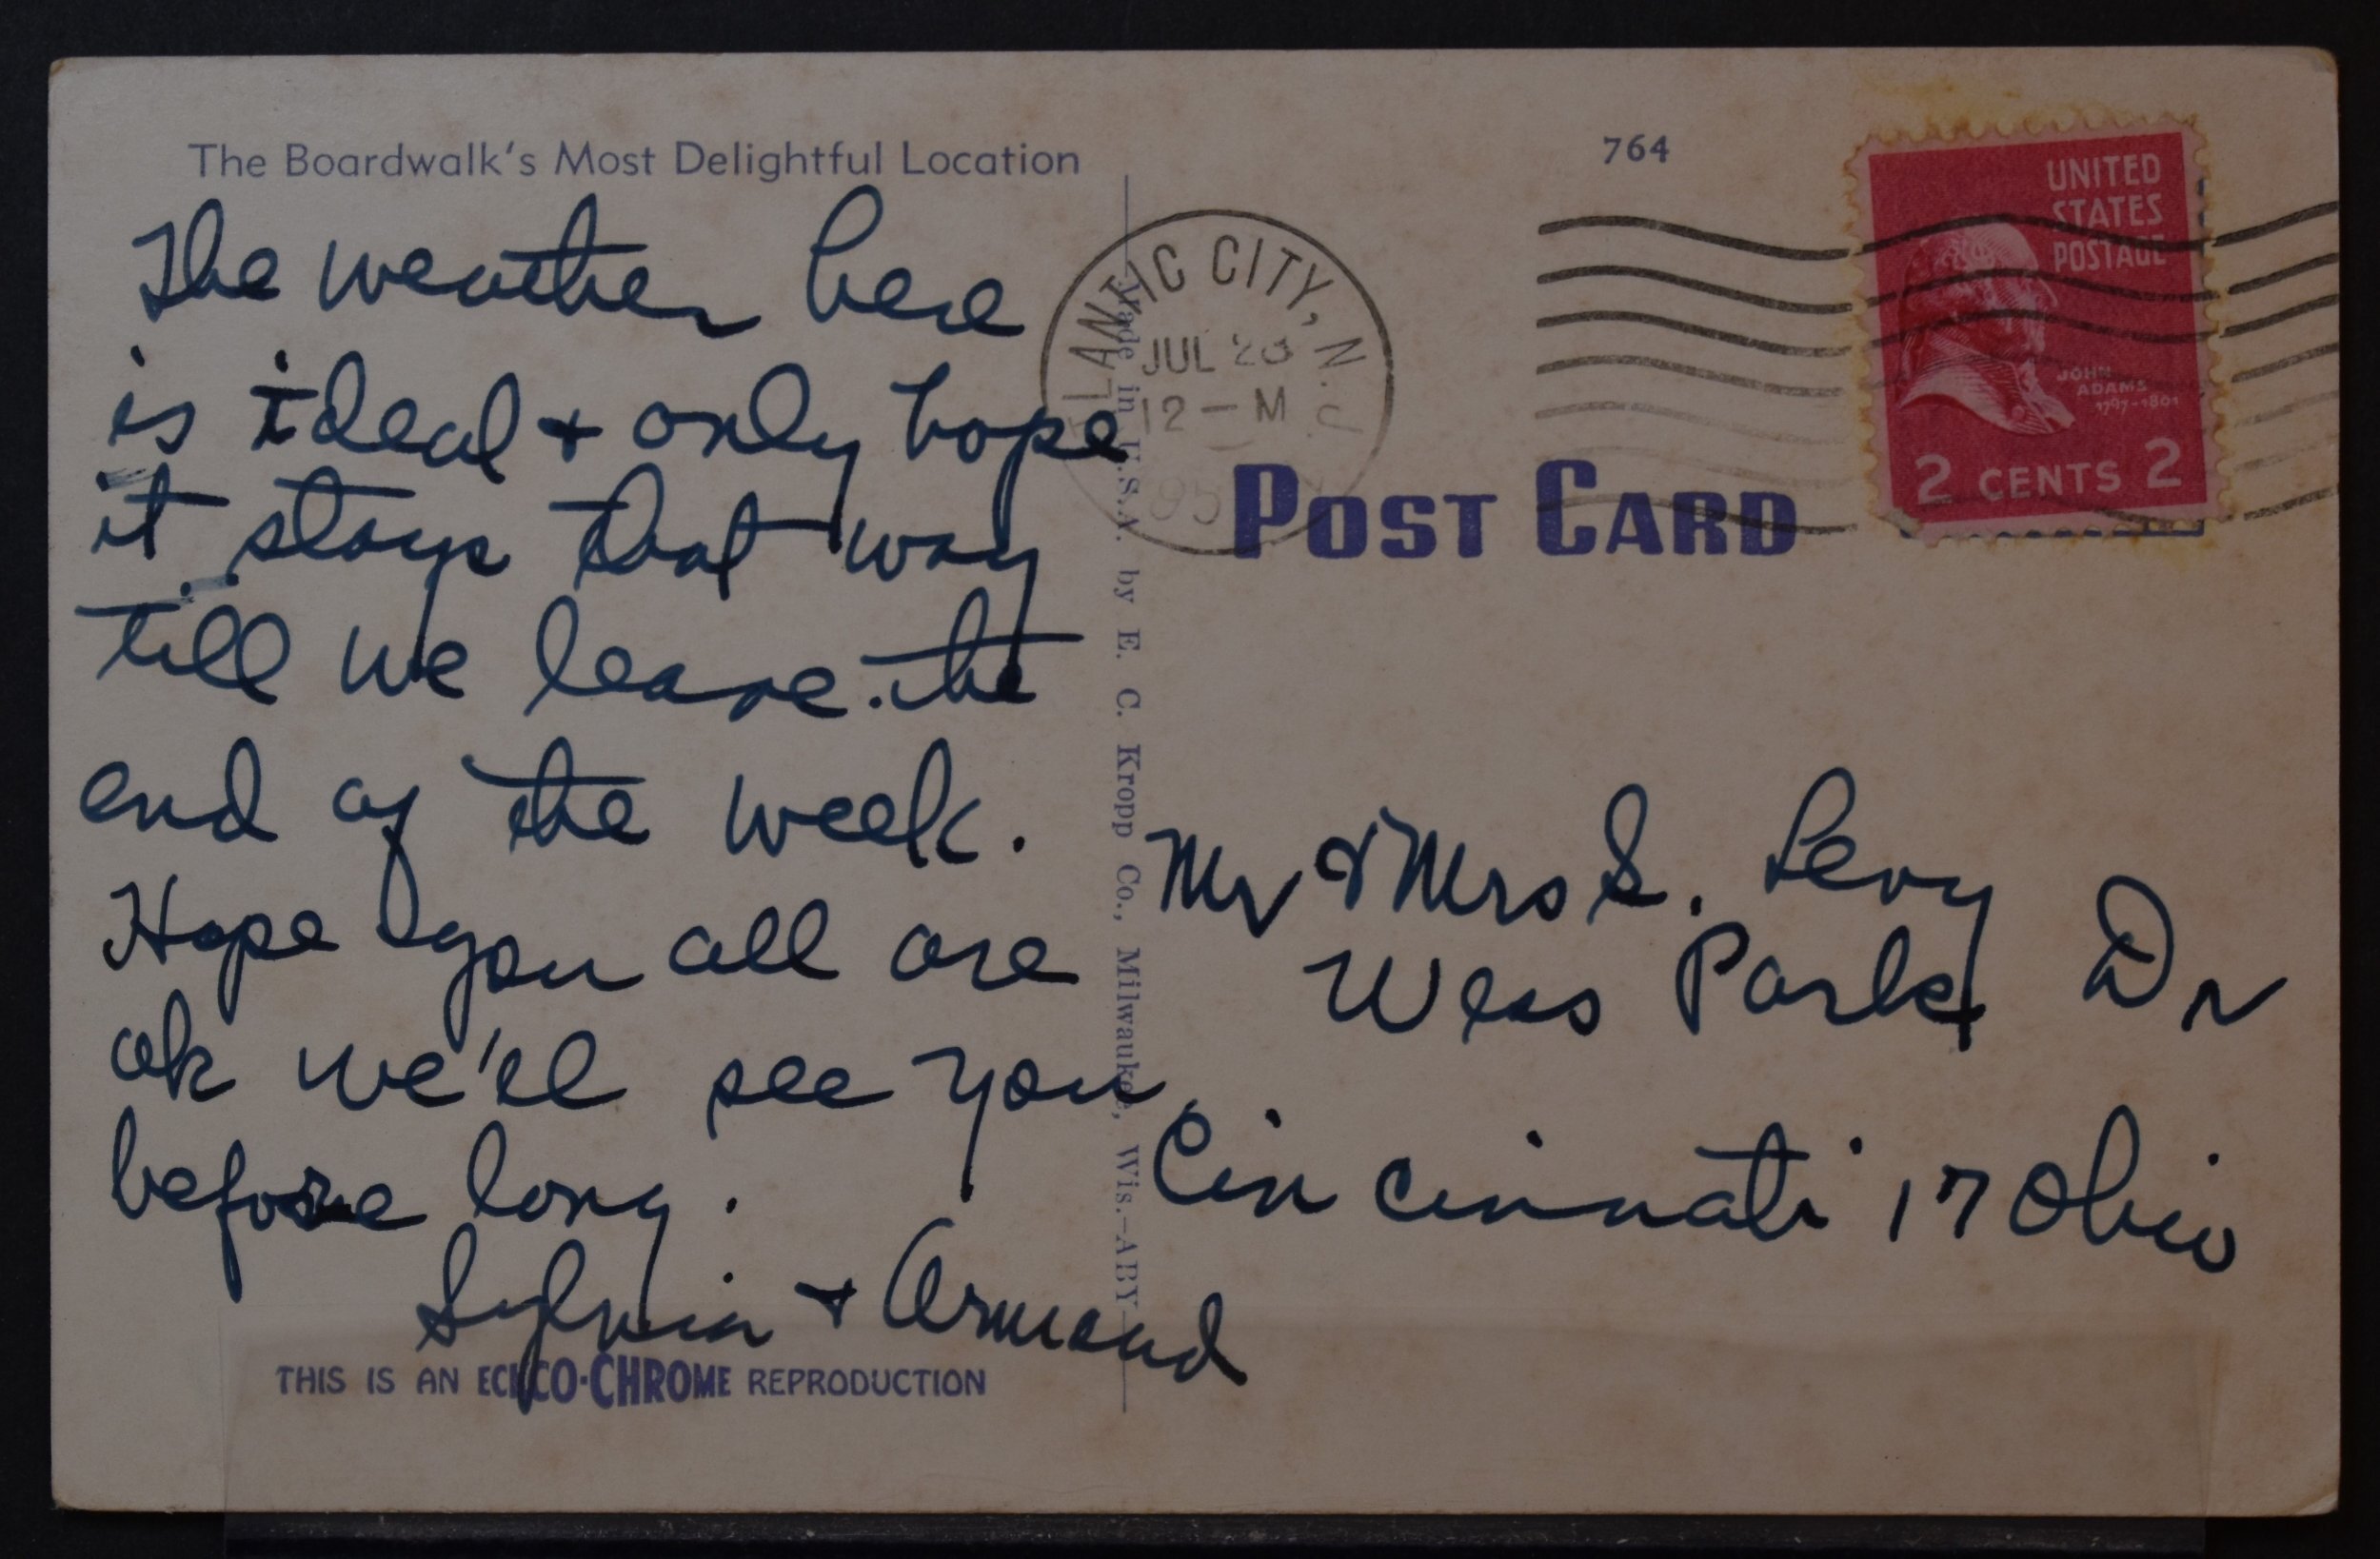 The Boardwalk's Most Delightful Location
The weather here
is ideal + only hope
it stays that way
till we leave the
end of the week.
Hope you all are
ok we'll see you
before long.
Sylvia + Armand
THIS IS AN ECKCO-CHROME REPRODUCTION
Made in U.S.A. by E. C. Kropp Co., Milwaukee, Wis.-ABY
764
ATLANTIC CITY, N.J.
JUL
12-M
195
POST CARD
UNITED
STATES
POSTAGE
JOHN
ADAMS
1797-1801
2 CENTS 2
Mr & Mrs S. Levy
Wess Park Dr
Cincinnati 17 Ohio